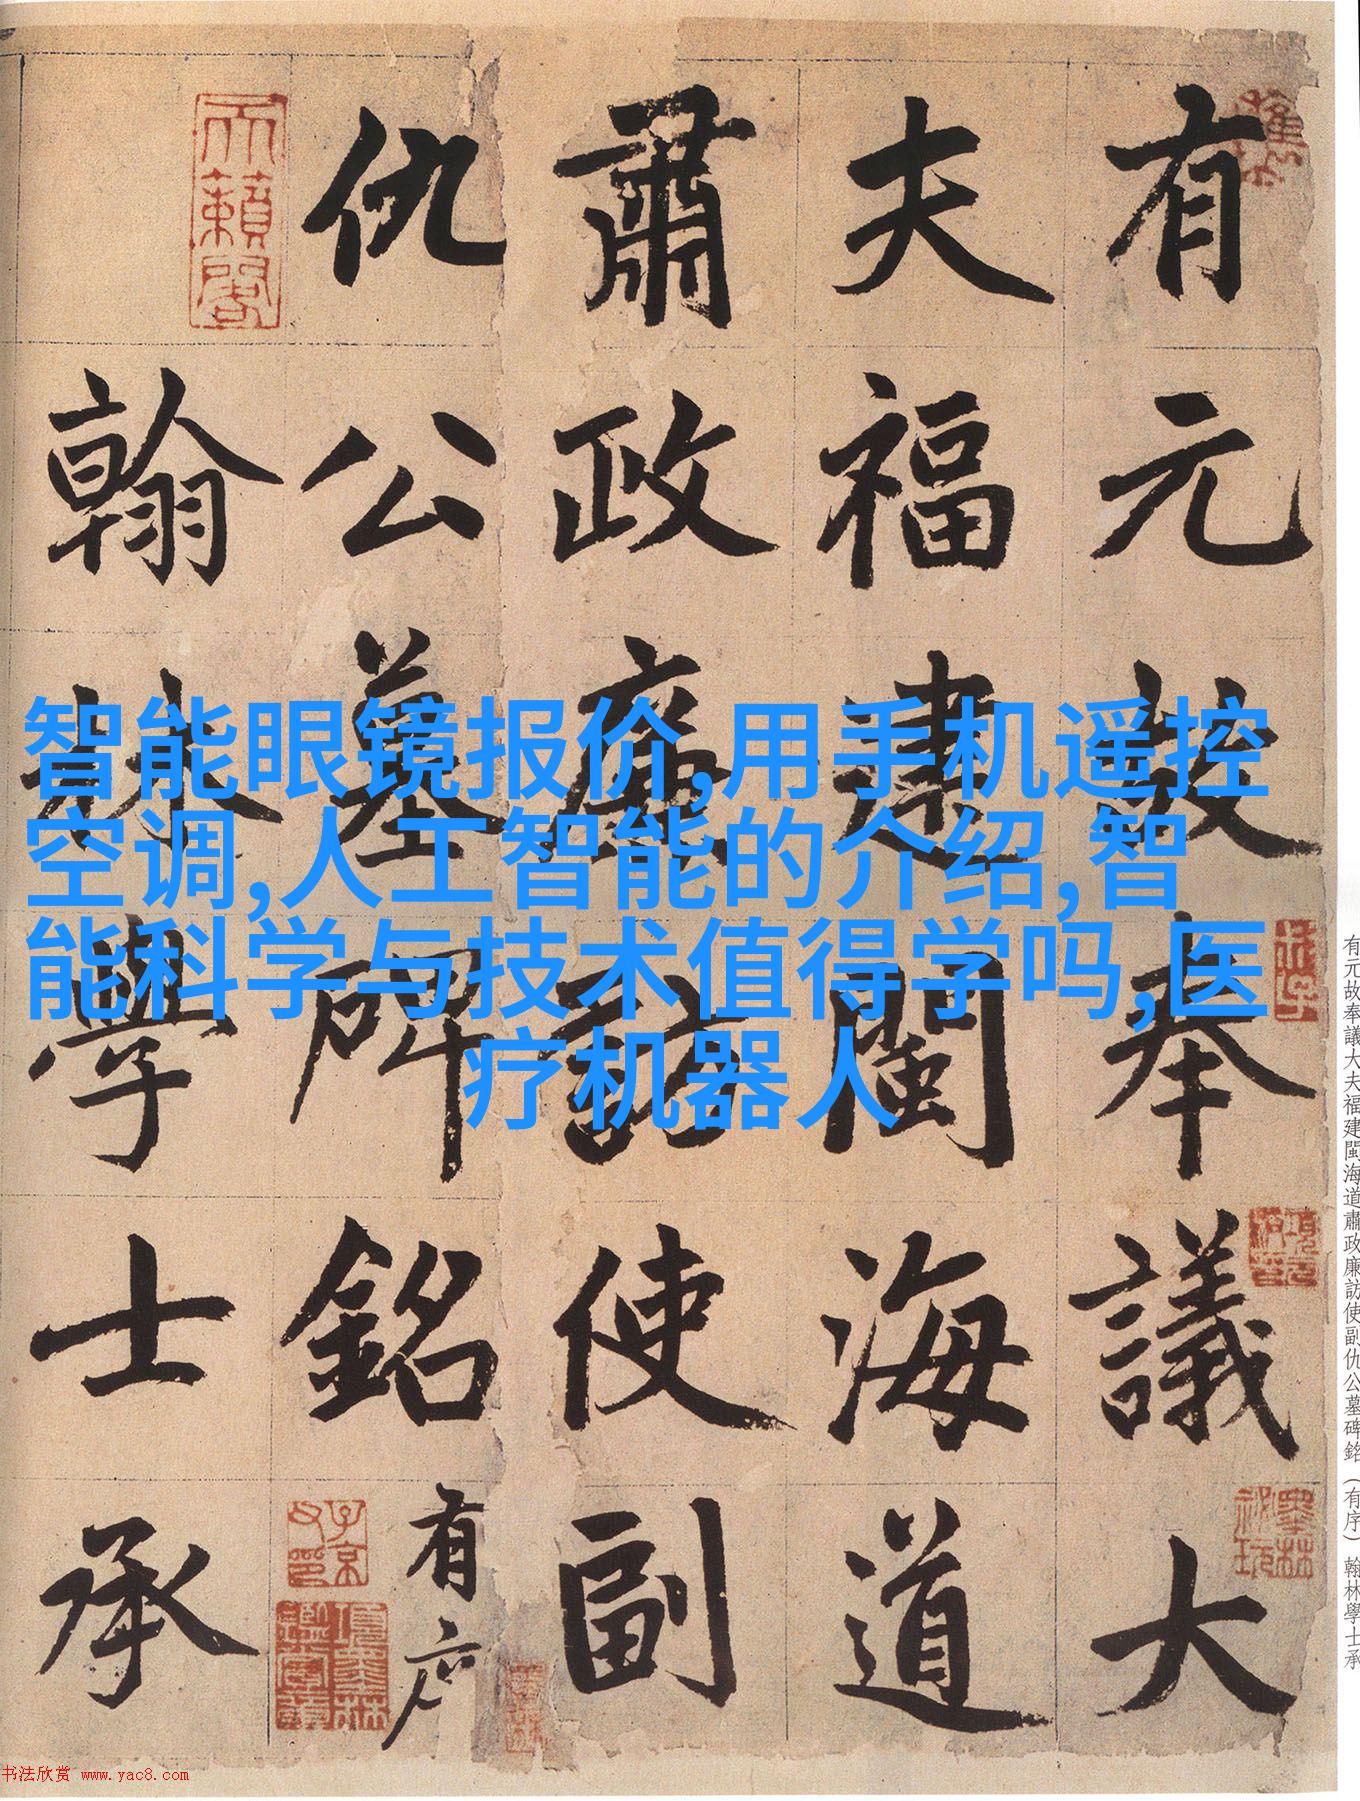 智能眼镜报价,用手机遥控
空调,人工智能的介绍,智
能科学与技术值得学吗,医
疗机器人
有元故奉議大
夫福建閩海道
肅政廉訪使副
仇公墓碑銘 有序
翰林學士承
天籟閣
子京父印
項墨林鑑賞章
墨林祕玩
有元故奉議大夫福建閩海道肅政廉訪使副仇公墓碑銘（有序） 翰林學士承
书法欣赏 www.yac8.com